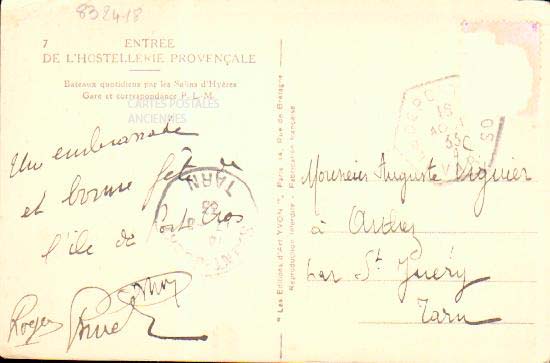 832418
7
ENTRÉE
DE L'HOSTELLERIE PROVENÇALE
Bateaux quotidiens par les Salins d'Hyères
Gare et correspondance P.-L.-M.
CARTES POSTALES
ANCIENNES
Une embrassade
et bonne fête de
l'île de Port Cros
Roger
TARN
"Les Éditions d'Art YVON", Paris 14, Rue de Bretagne
Reproduction Interdite - Fabrication française
Monsieur Auguste Viguier
à Arthès
par St Juéry
Tarn